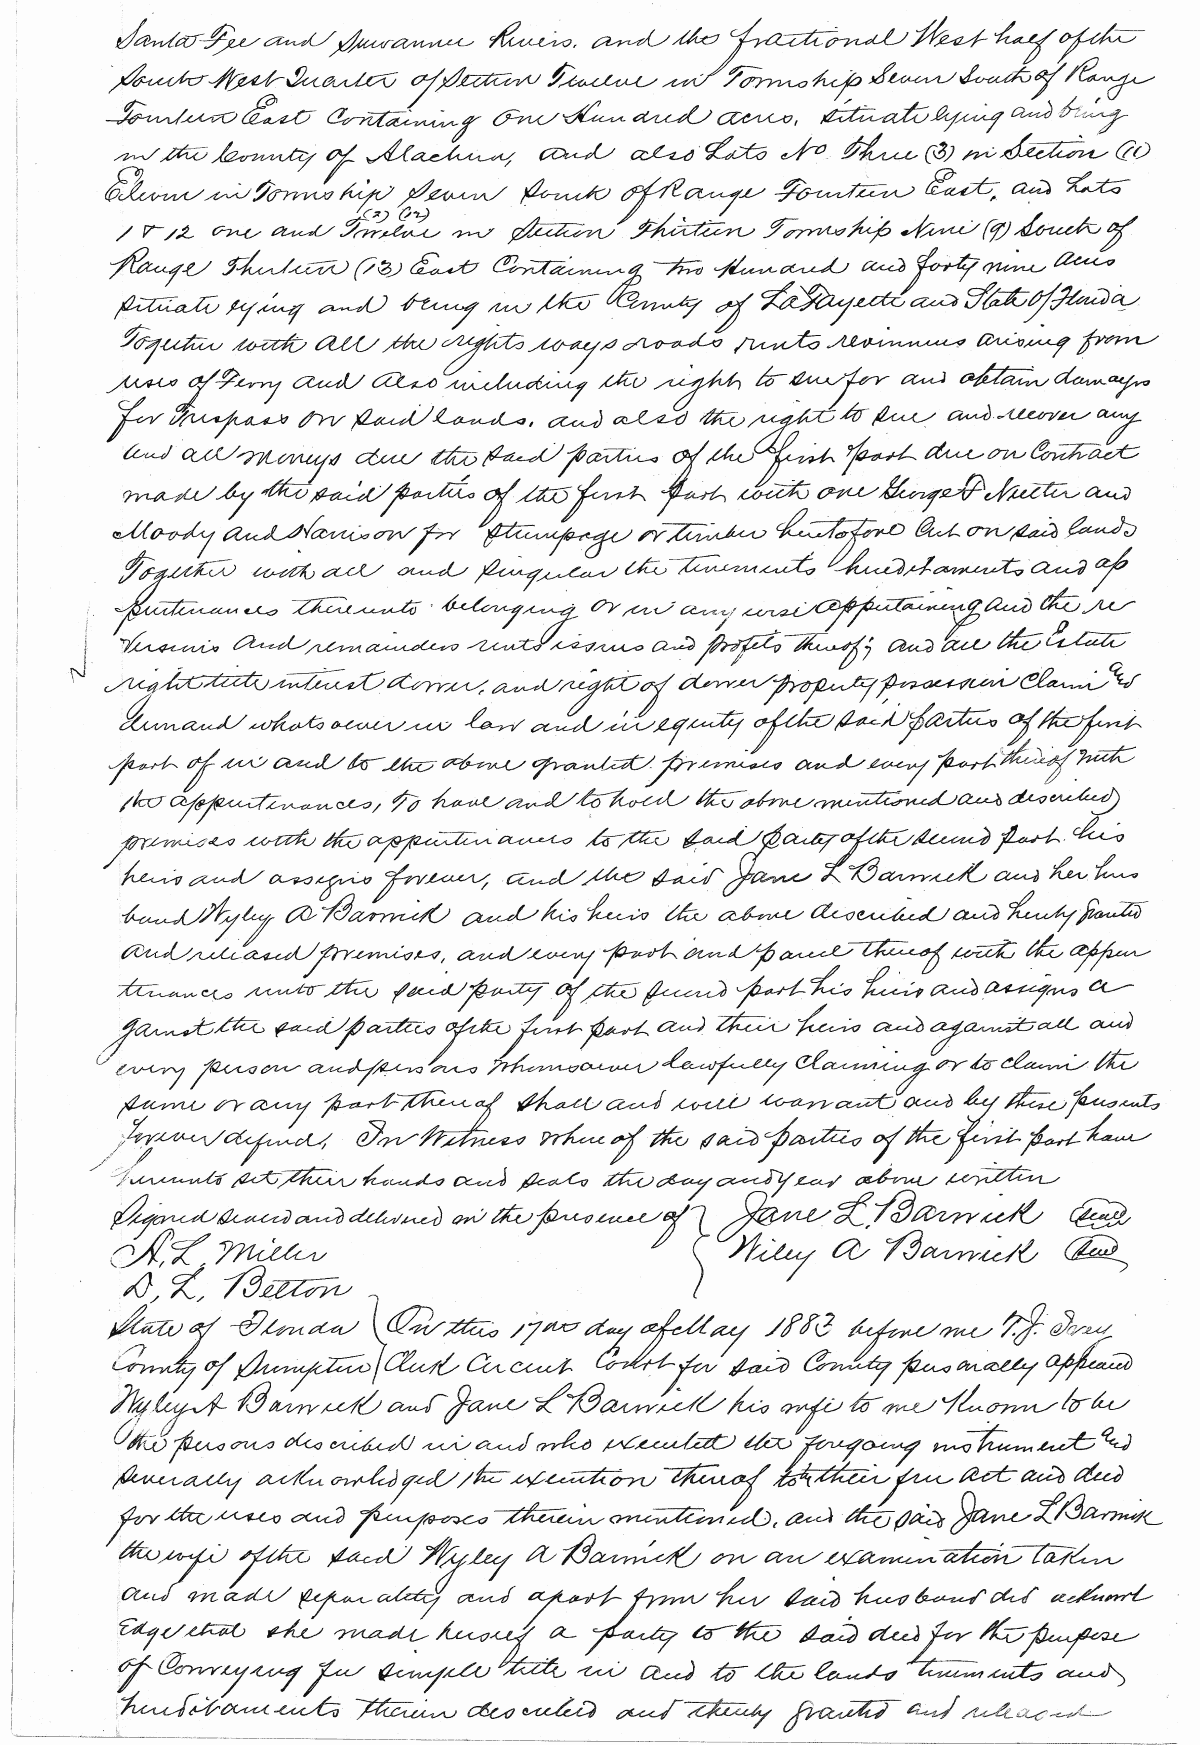 Santa Fee and Suwannee Rivers. and the fractional West half of the
South West Quarter of Section Twelve in Township Seven South of Range
Fourteen East Containing One Hundred acres. Situate lying and being
in the County of Alachua, and also Lots No. Three (3) in Section (11)
Eleven in Township Seven South of Range Fourteen East, and Lots
1 & 12 one and Twelve (12) in Section Thirteen Township Nine (9) South of
Range Thirteen (13) East Containing two Hundred and forty nine Acres
situate lying and being in the County of LaFayette and State of Florida
Together with all the rights ways roads rents revinues arising from
uses of Ferry and also including the right to sue for and obtain damages
for Trespass on said lands. and also the right to sue and recover any
and all moneys due the said parties of the first part due on Contract
made by the said parties of the first part with one George and
Moody and Harrison for Stumpage or timber heretofore Cut on said lands
Together with all and singular the tenements hereditaments and ap
purtenances thereunto belonging or in anywise appertaining and the re
versions and remainders rents issues and profits thereof; and all the Estate
right title interest dower, and right of dower property possession Claim and
demand whatsoever in law and in equity of the said parties of the first
part of in and to the above granted premises and every part thereof with
the appurtenances, To have and to hold the above mentioned and described
premises with the appurtenances to the said party of the second part his
heirs and assigns forever, and the said Jane L Barwick and her hus
band Wyley A Barwick and his heirs the above described and hereby granted
and released premises, and every part and parcel thereof with the appur
tenances unto the said party of the second part his heirs and assigns a
gainst the said parties of the first part and their heirs and against all and
every person and persons whomsoever lawfully Claiming or to claim the
same or any part thereof shall and will warrant and by these presents
forever defend. In Witness whereof the said parties of the first part have
hereunto set their hands and seals the day and year above written
Signed sealed and delivered in the presence of Jane L. Barwick Seal
A. L. Miller Wiley A Barwick Seal
D. L. Belton
State of Florida On this 17th day of May 1883 before me T. J. Ivey
County of Sumpter Clerk Circuit Court for said County personally appeared
Wyley A Barwick and Jane L Barwick his wife to me Known to be
the persons described in and who executed the foregoing instrument and
severally acknowledged the execution thereof to be their free act and deed
for the uses and purposes therein mentioned, and the said Jane L Barwick
the wife of the said Wyley A Barwick on an examination taken
and made separately and apart from her said husband did acknowl
edge that she made herself a party to the said deed for the purpose
of Conveying fee simple title in and to the lands tenements and
hereditaments therein described and thereby granted and released